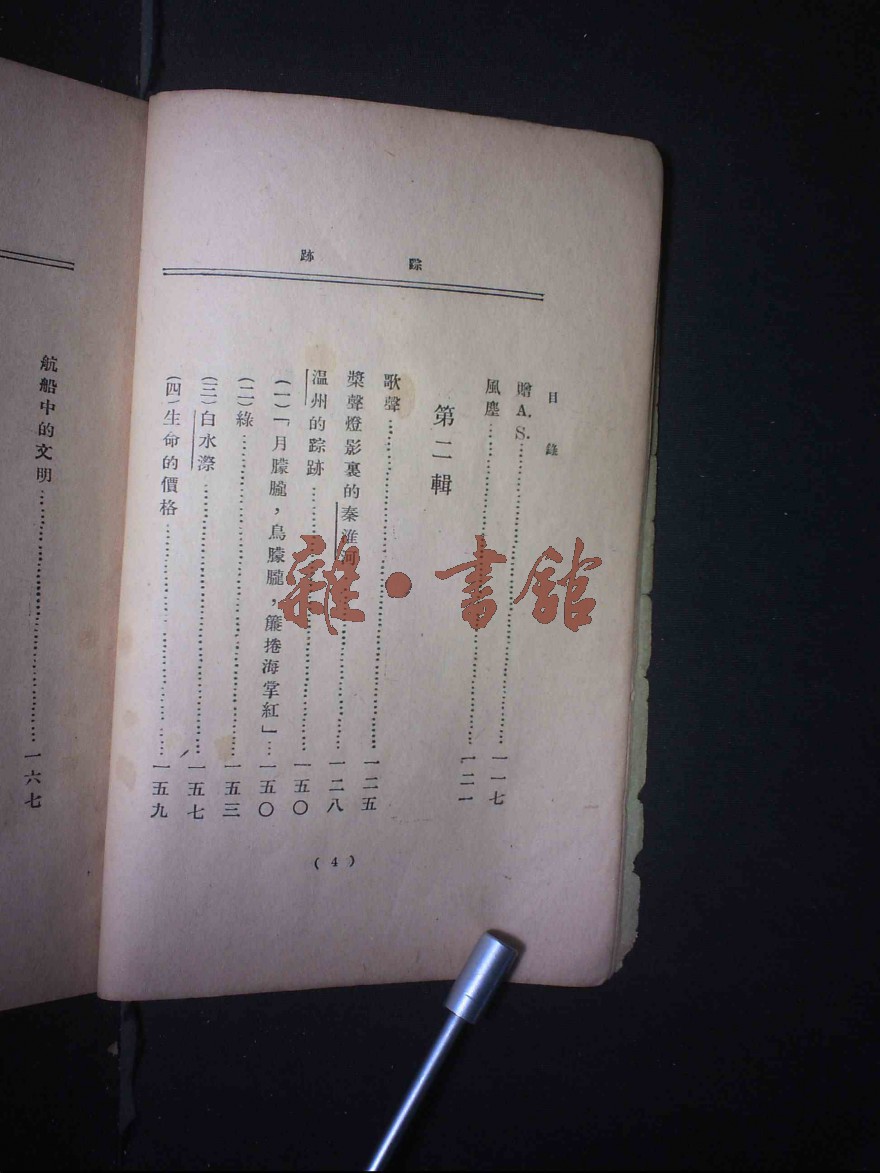 踪跡
目錄
贈A.S.……一一七
風塵……一二一
第二輯
歌聲……一二五
槳聲燈影裏的秦淮河……一二八
温州的踪跡……一五〇
(一)「月朦朧，鳥朦朧，簾捲海棠紅」…一五〇
(二)綠……一五三
(三)白水漈……一五七
(四)生命的價格……一五九
(4)
航船中的文明……一六七
雜·書館